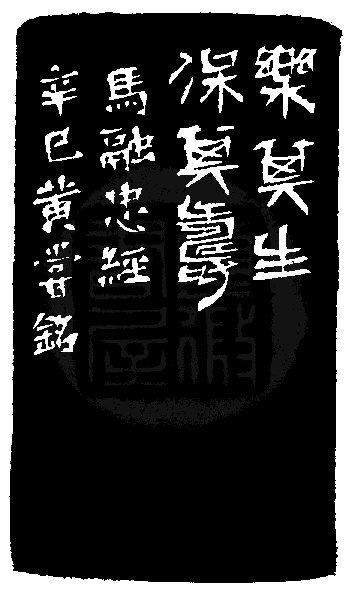 樂其生
保其壽
馬融忠經
辛巳黃嘗銘